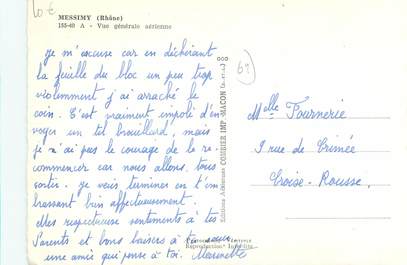 10 €
MESSIMY (Rhône)
155-40 A - Vue générale aérienne
69
Je m'excuse car en déchirant
la feuille du bloc un peu trop
violemment j'ai arraché le
coin. C'est vraiment impoli d'en
voyer un tel brouillard, mais
je n'ai pas le courage de le re-
commencer car nous allons tous
sortir. Je vais terminer en t'em
brassant bien affectueusement.
Mes respectueux sentiments à tes
Parents et bons baisers à ta sœur
une amie qui pense à toi.
Editions Aériennes COMBIER IMP. MACON
Reproduction Interdite
Melle Fournerie
9 rue de Crimée
Croix-Rousse.